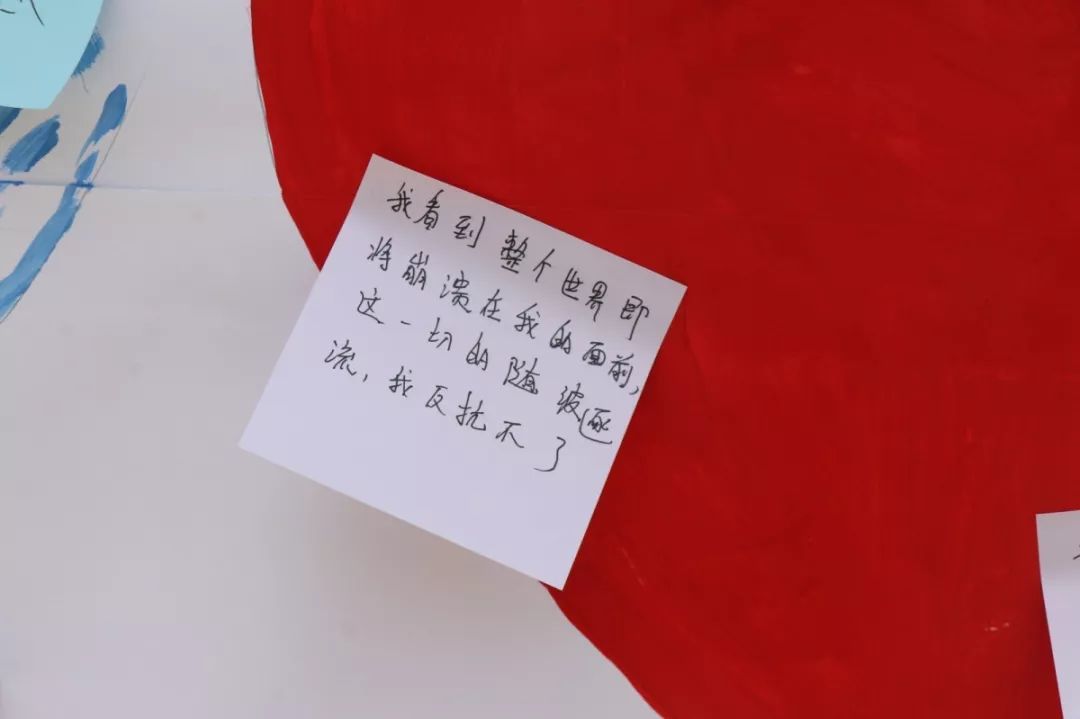 我看到整个世界即
将崩溃在我的面前,
这一切的随波逐
流,我反抗不了